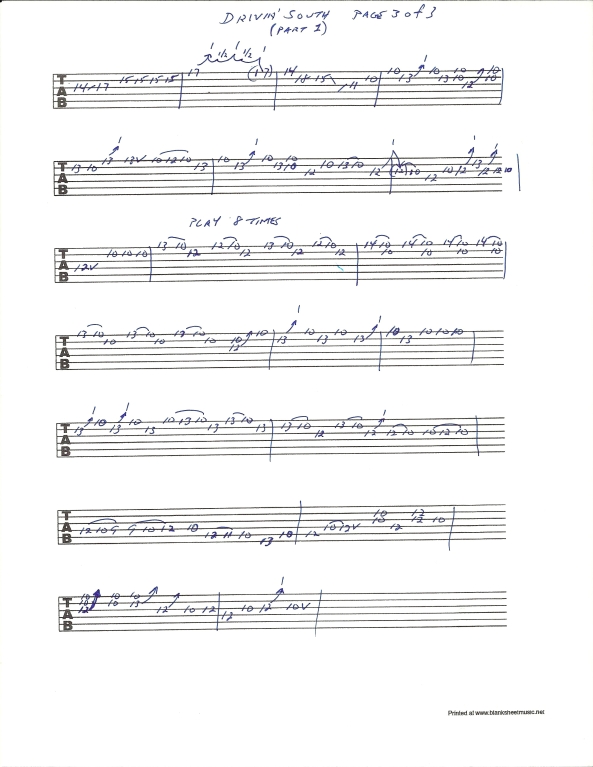 DRIVIN' SOUTH PAGE 3 of 3
(PART 1)
1 1/2 1/2 1
TAB 14 17 15 15 15 15 17 (17) 14 15 11 10 10 13 1 10 13 10 10 12 10 10
TAB 13 10 13 1 13V 10 12 10 13 10 13 1 10 13 10 10 12 10 13 10 12 1 (12) 10 12 10 12 1 13 12 1 12 10
PLAY 8 TIMES
TAB 12V 10 10 10 13 10 12 12 10 12 13 10 12 12 10 12 14 10 10 14 10 10 14 10 10 14 10 10
TAB 13 10 10 13 10 10 13 10 10 10 13 10 13 1 10 13 10 13 1 10 13 10 10 10
TAB 13 1 10 13 1 10 13 10 13 10 13 13 10 13 13 10 12 13 10 12 1 12 10 10 12 10
TAB 12 10 9 9 10 12 10 12 11 10 13 10 12 10 13V 10 10 12 12 12 10
TAB 10 10 12 10 10 10 13 12 10 12 12 10 12 1 10V
Printed at www.blanksheetmusic.net